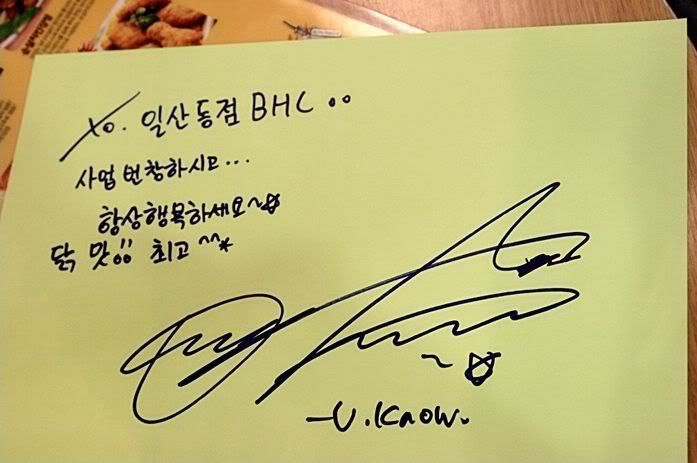 To. 일산동점 BHC..
사업 번창하시고...
항상행복하세요~☆
닭 맛!! 최고^^*
~☆
-U.Know.